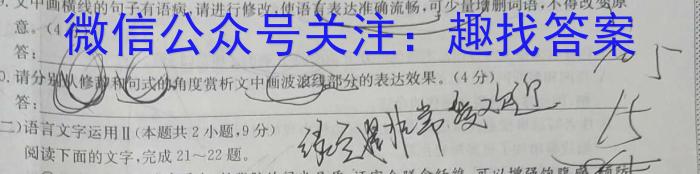 文中画横线的句子有语病,请进行修改,使语言表达准确流畅,可少量增删词语,不得改变原
意。(4
微信公众号关注：趣找答案
答:
0.请分别从修辞和句式的角度赏析文中画波浪线部分的表达效果。(4 分)
答:
15
二)语言文字运用Ⅱ(本题共 2 小题,9 分)
阅读下面的文字,完成 21～22 题。